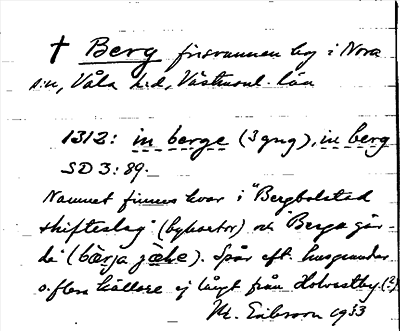 † Berg försvunnen by i Nora
sn, Våla hd, Västmanl. län
1312: in berge (3 gng), in berg
SD 3: 89.
Namnet finnes kvar i "Bergbolstad
skifteslag" (bykartor) och "Berga går-
da" (bærja). Spår eft. husgrunder
o. flera källare ej långt från Holvestby (?)
1933